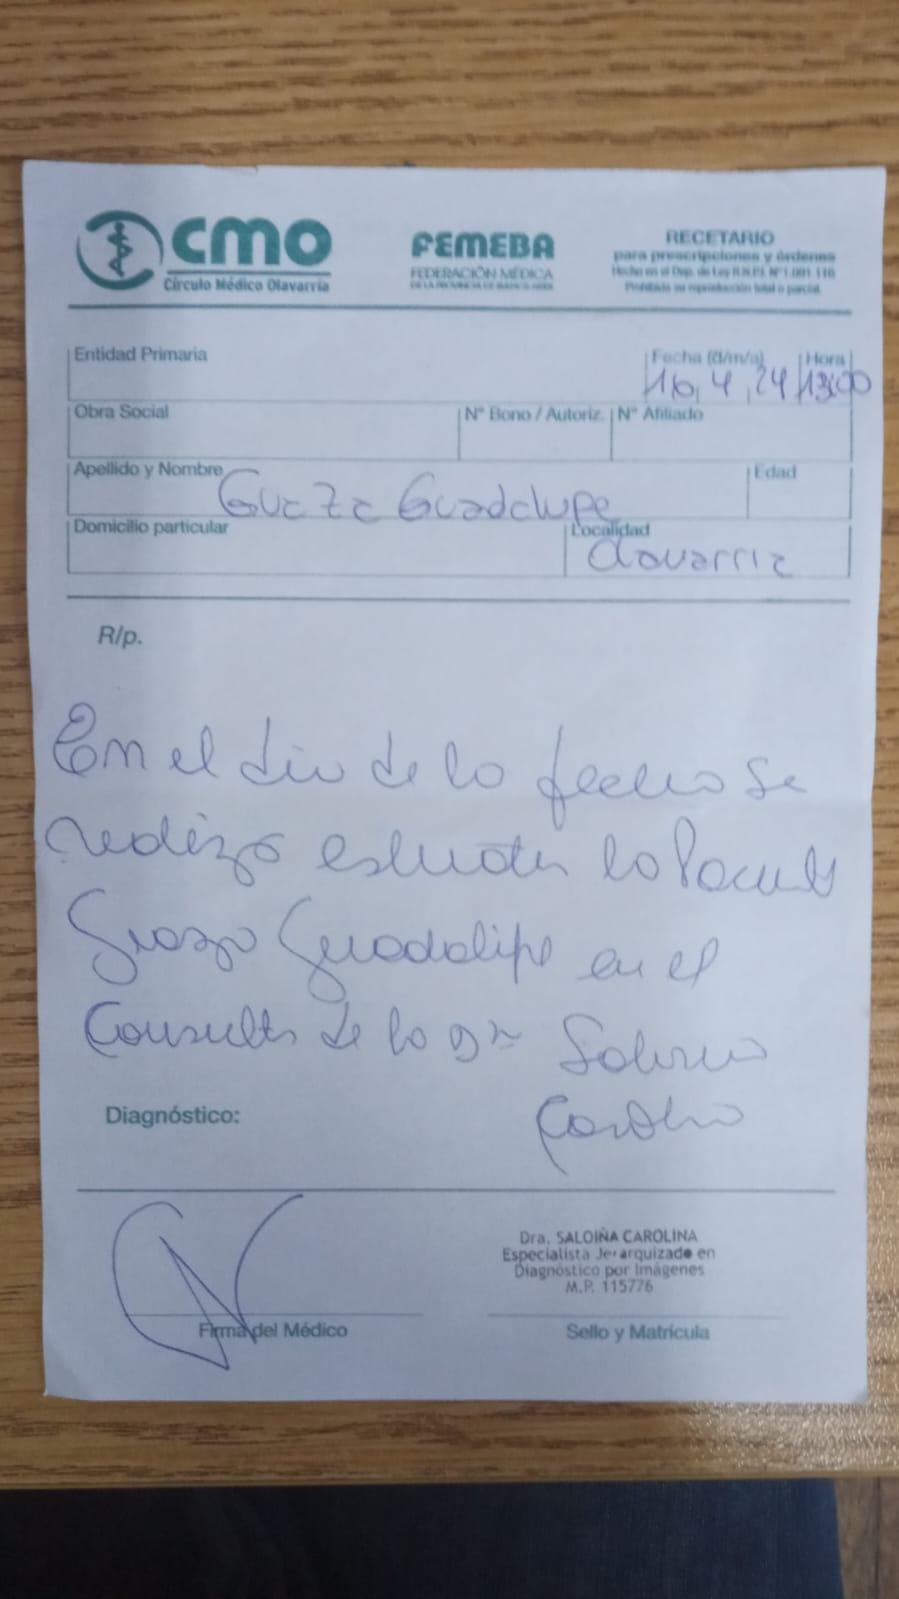 CMO
Círculo Médico Olavarría
FEMEBA
FEDERACIÓN MÉDICA
DE LA PROVINCIA DE BUENOS AIRES
RECETARIO
para prescripciones y órdenes
Hecho en el Dep. de Ley R.N.P.I. Nº 1.091.116
Prohibida su reproducción total o parcial
Entidad Primaria
Fecha (d/m/a) Hora
16, 4, 24 13:00
Obra Social Nº Bono / Autoriz. Nº Afiliado
Apellido y Nombre Edad
Guaza Guadalupe
Domicilio particular Localidad
Olavarria
R/p.
En el dia de la fecha se
realizo estudios la Paciente
Guazo Guadalupe en el
Consult de la Dra Saloiña
Carolina
Diagnóstico:
Dra. SALOIÑA CAROLINA
Especialista Jerarquizado en
Diagnóstico por Imágenes
M.P. 115776
Firma del Médico Sello y Matrícula